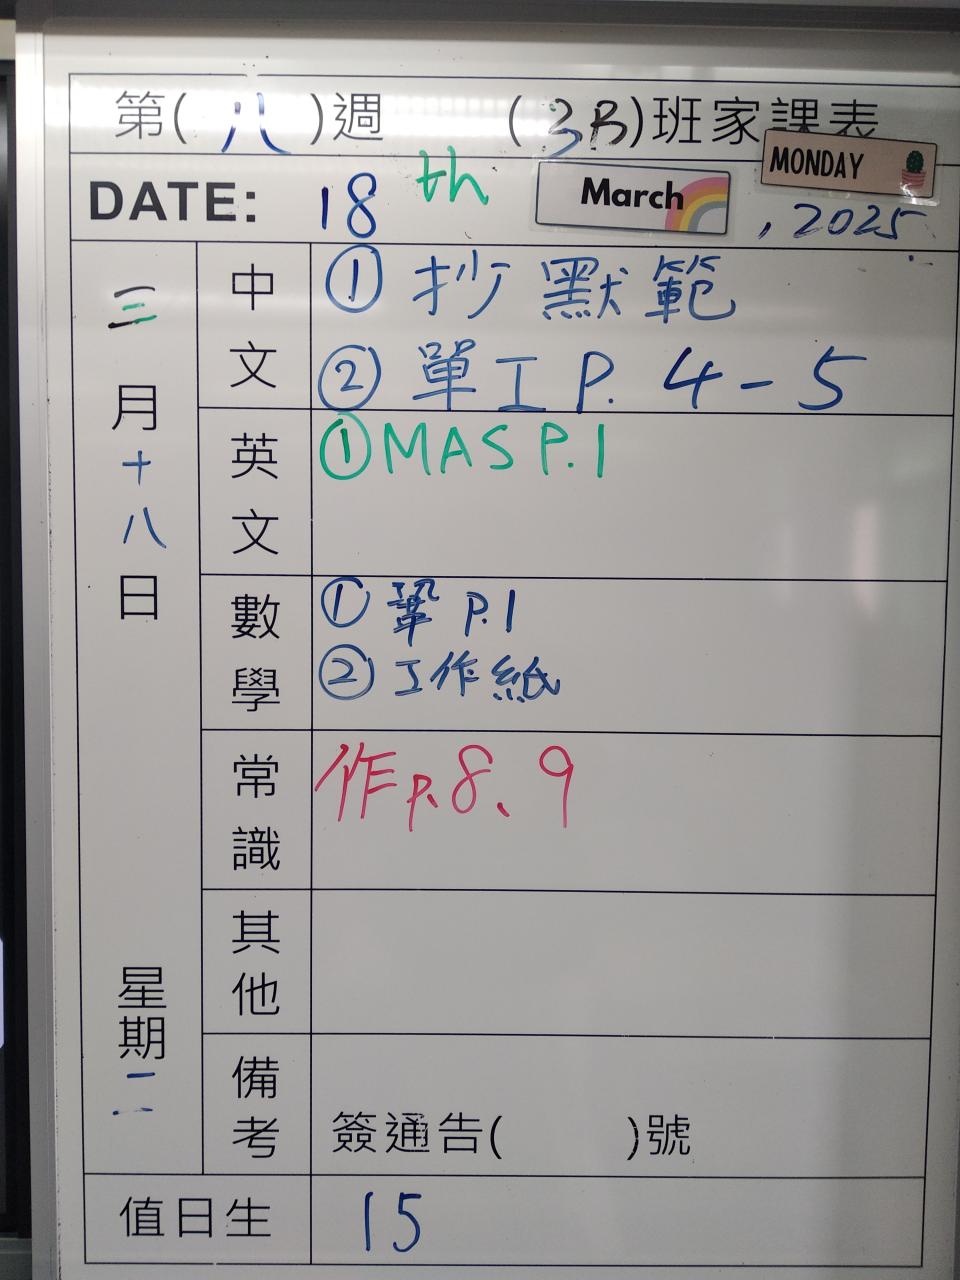 第(八)週 (3B)班家課表
MONDAY
DATE: 18th March, 2025
三月十八日
星期二
中文
①抄默範
②單工P. 4-5
英文
①MAS P.1
數學
①鞏 P.1
②工作紙
常識
作p.8、9
其他
備考
簽通告( )號
值日生
15